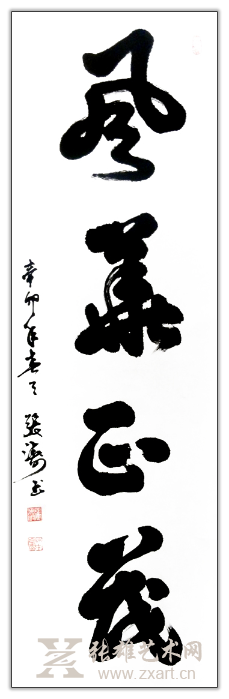 風華正茂
辛卯年春月張
张雄艺术网
www.zxart.cn